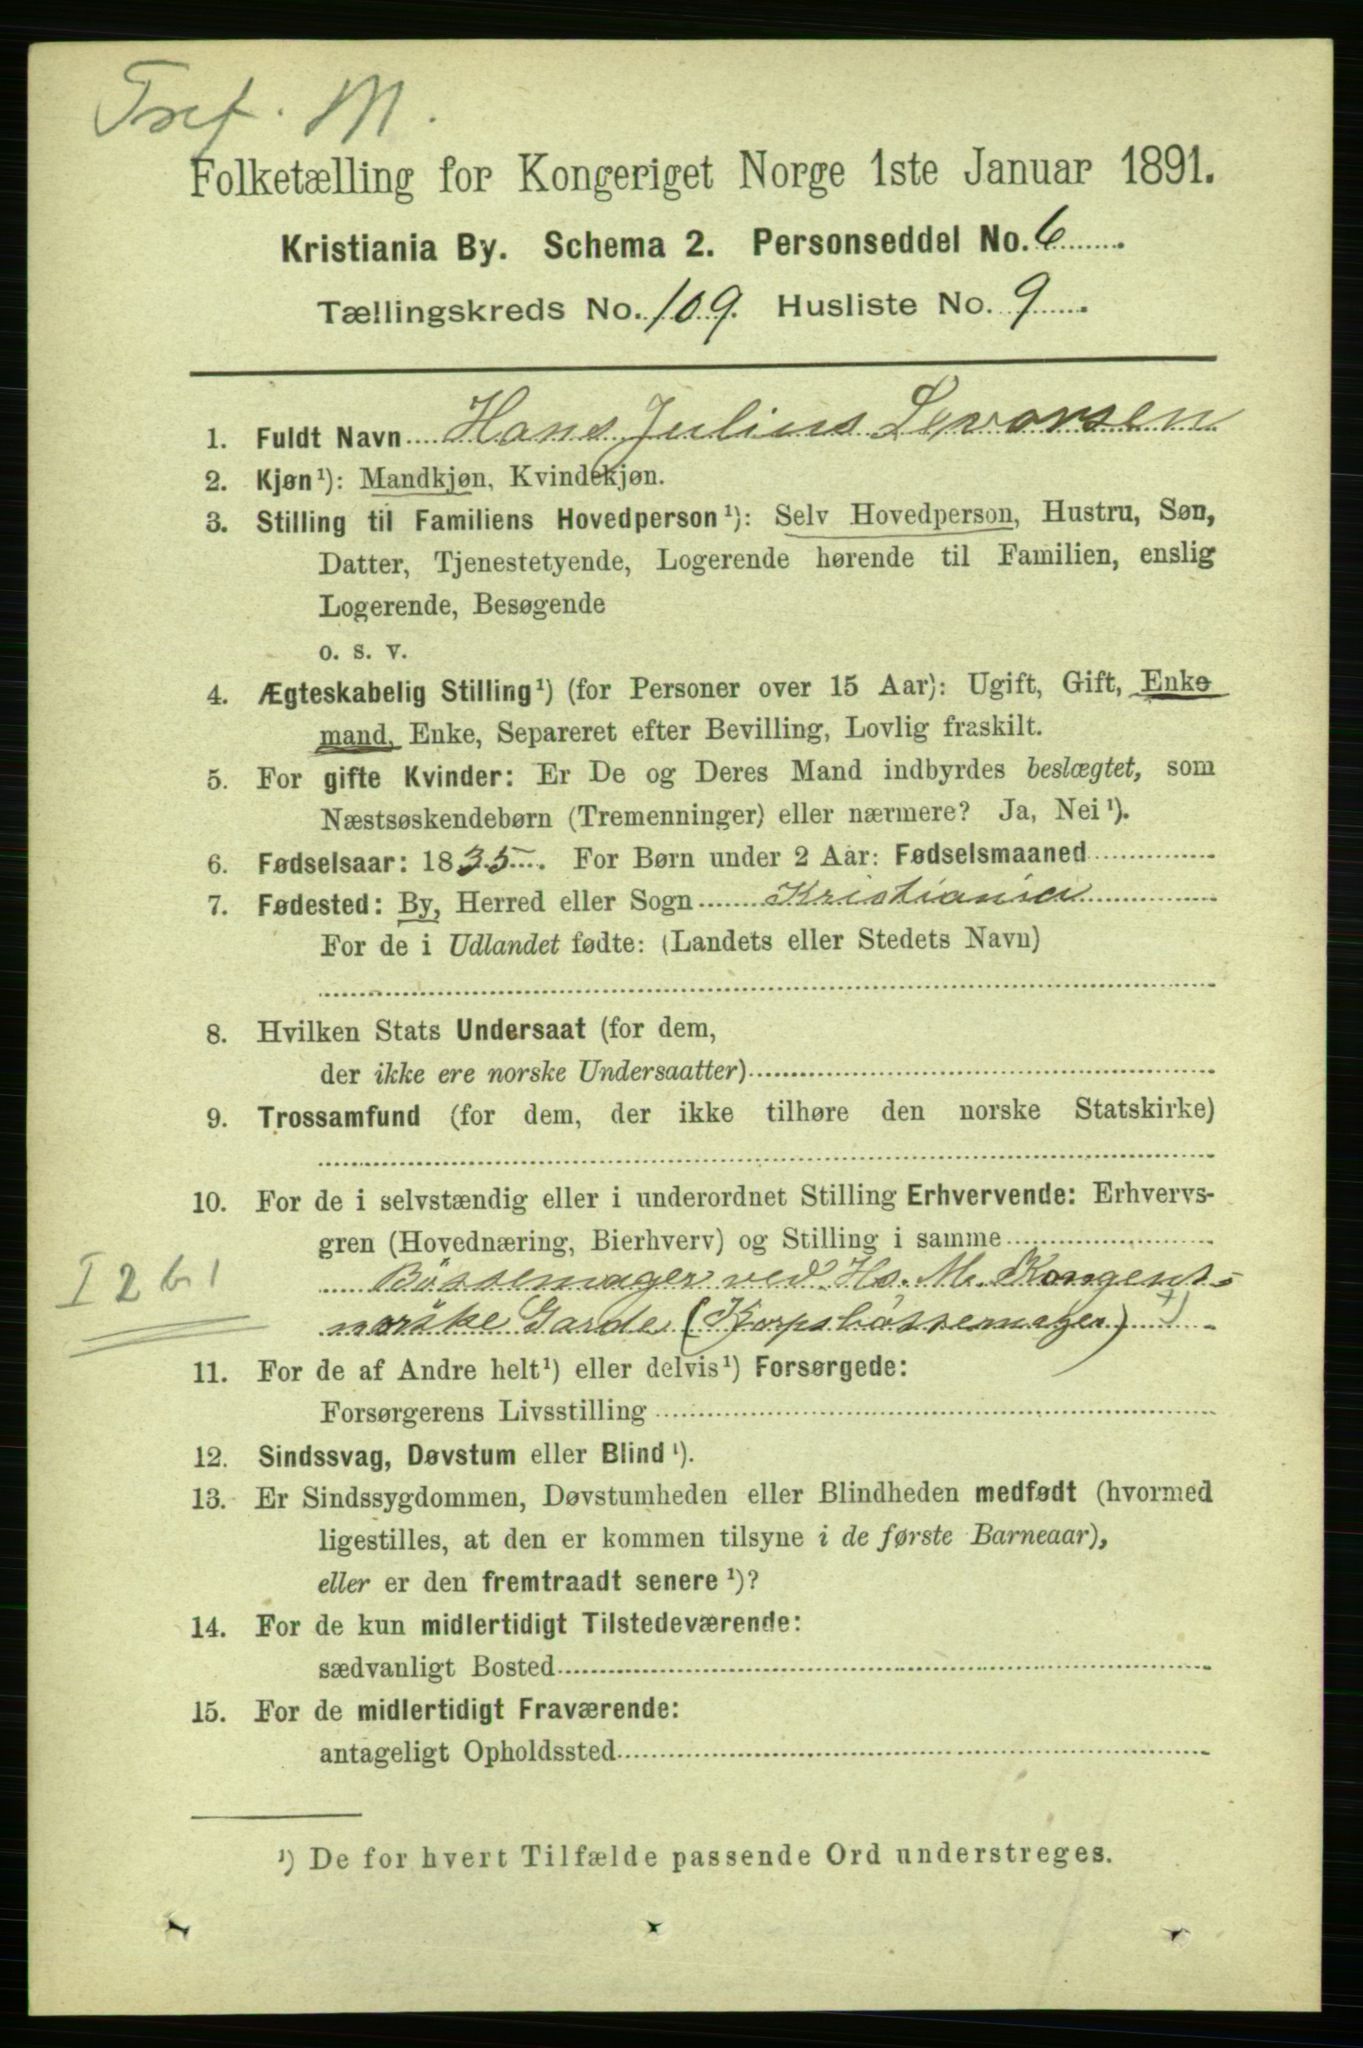 Folketælling for Kongeriget Norge 1ste Januar 1891.
Kristiania By. Schema 2. Personseddel No. 6
Tællingskreds No. 109. Husliste No. 9
1. Fuldt Navn Hans Julius Levorsen
2. Kjøn¹): Mandkjøn, Kvindekjøn.
3. Stilling til Familiens Hovedperson¹): Selv Hovedperson, Hustru, Søn,
Datter, Tjenestetyende, Logerende hørende til Familien, enslig
Logerende, Besøgende
o. s. v.
4. Ægteskabelig Stilling¹) (for Personer over 15 Aar): Ugift, Gift, Enke
mand, Enke, Separeret efter Bevilling, Lovlig fraskilt.
5. For gifte Kvinder: Er De og Deres Mand indbyrdes beslægtet, som
Næstsøskendebørn (Tremenninger) eller nærmere? Ja, Nei¹).
6. Fødselsaar: 1835. For Børn under 2 Aar: Fødselsmaaned
7. Fødested: By, Herred eller Sogn Kristiania
For de i Udlandet fødte: (Landets eller Stedets Navn)
8. Hvilken Stats Undersaat (for dem,
der ikke ere norske Undersaatter)
9. Trossamfund (for dem, der ikke tilhøre den norske Statskirke)
10. For de i selvstændig eller i underordnet Stilling Erhvervende: Erhvervs-
gren (Hovednæring, Bierhverv) og Stilling i samme
Bössemager ved Hs. M. Kongens
I 2 b 1
norske Garde (Korpsbössemager)
11. For de af Andre helt¹) eller delvis¹) Forsørgede:
Forsørgerens Livsstilling
12. Sindssvag, Døvstum eller Blind¹).
13. Er Sindssygdommen, Døvstumheden eller Blindheden medfødt (hvormed
ligestilles, at den er kommen tilsyne i de første Barneaar),
eller er den fremtraadt senere¹)?
14. For de kun midlertidigt Tilstedeværende:
sædvanligt Bosted
15. For de midlertidigt Fraværende:
antageligt Opholdssted
¹) De for hvert Tilfælde passende Ord understreges.